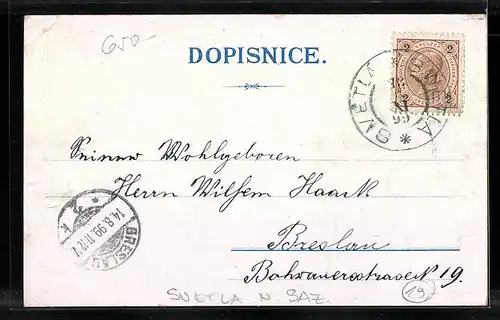 650-
DOPISNICE.
2 KREUZER 2
SVETLA SVĚTLÁ
99
Seiner Wohlgeboren
Herrn Wilhem Haack
Breslau
Bohrauerstrasse N 19.
BRESLAU
14.8.99.11-12 V.
K
SVETLA N. SAZ.
19